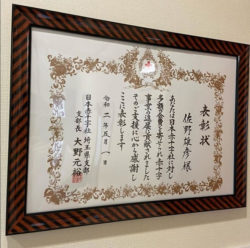 表彰状
佐野雄彦様
あなたは日本赤十字社に対し
多額の会費を寄せられ赤十字
事業の進展に貢献されました
そのご支援に心から感謝し
ここに表彰します
令和二年五月一日
日本赤十字社埼玉県支部
支部長 大野元裕